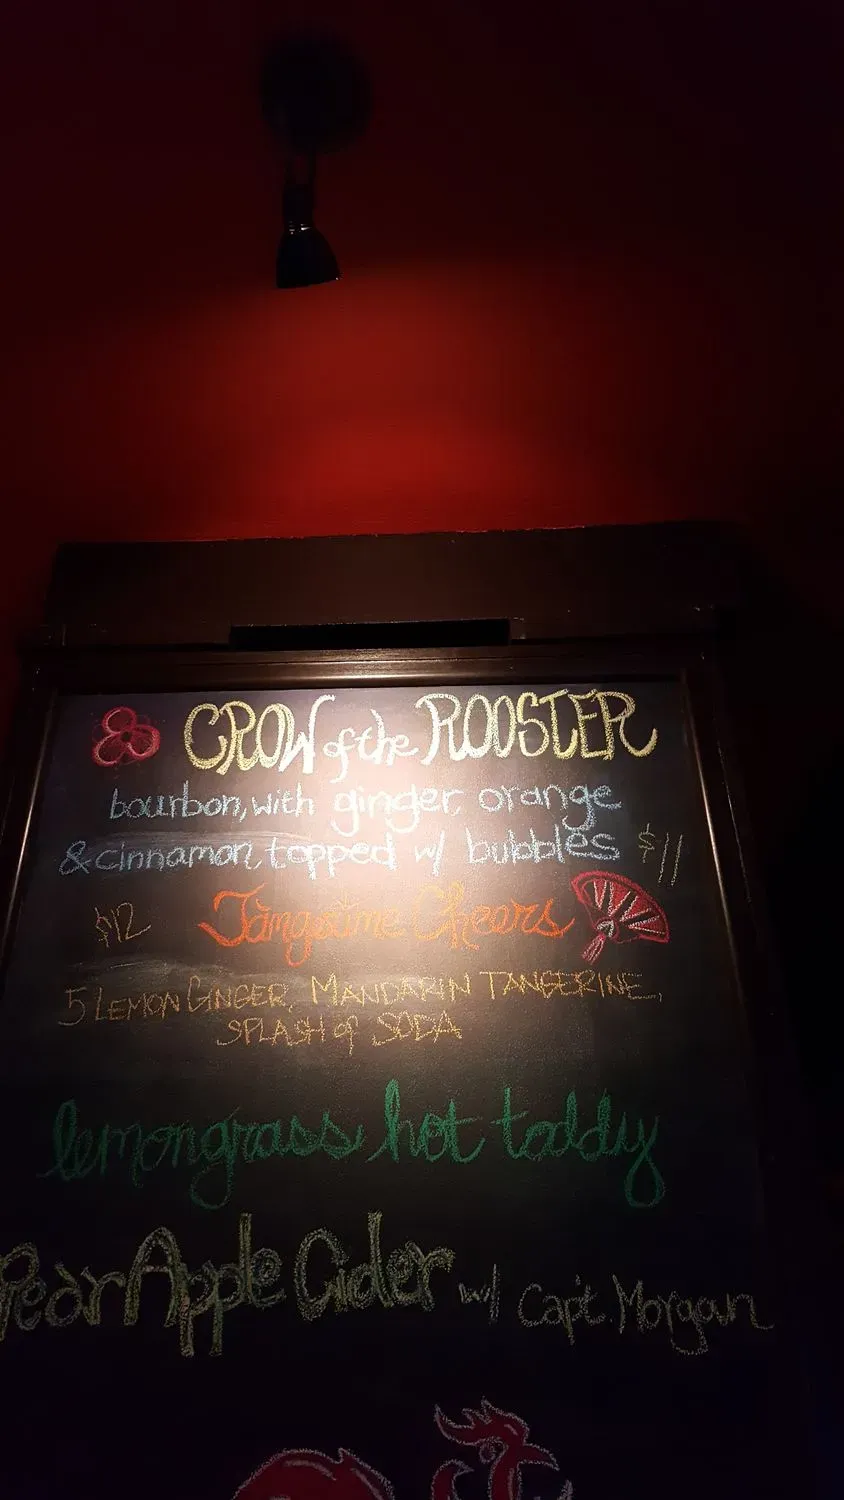 CROW of the ROOSTER
bourbon, with ginger, orange
& cinnamon, topped w/ bubbles $11
$12 Tangerine Cheers
5 LEMON GINGER, MANDARIN TANGERINE,
SPLASH of SODA
lemongrass hot toddy
Pear Apple Cider w/ Capt. Morgan